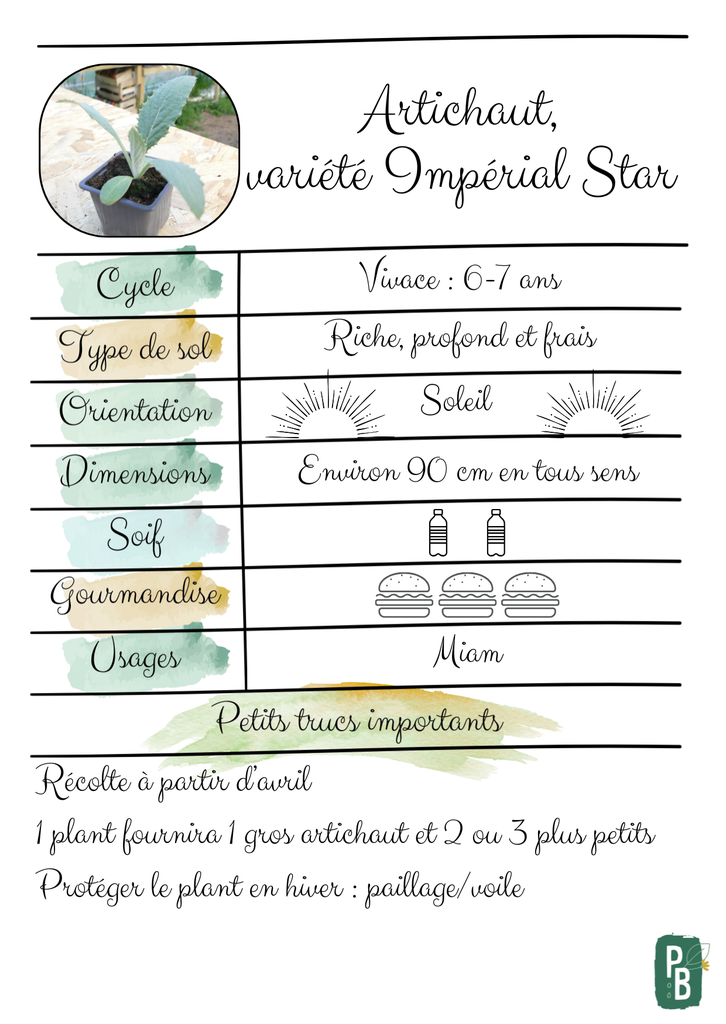 Artichaut,
variété Impérial Star
Cycle
Vivace : 6-7 ans
Type de sol
Riche, profond et frais
Orientation
Soleil
Dimensions
Environ 90 cm en tous sens
Soif
Gourmandise
Usages
Miam
Petits trucs importants
Récolte à partir d'avril
1 plant fournira 1 gros artichaut et 2 ou 3 plus petits
Protéger le plant en hiver : paillage/voile
PB